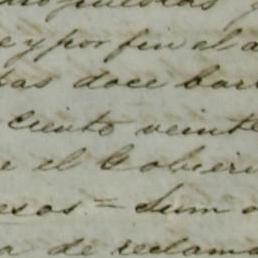 y por fin el a
as doce bar
ciento veinte
e el Gobier
esos = Sum
a de reclama